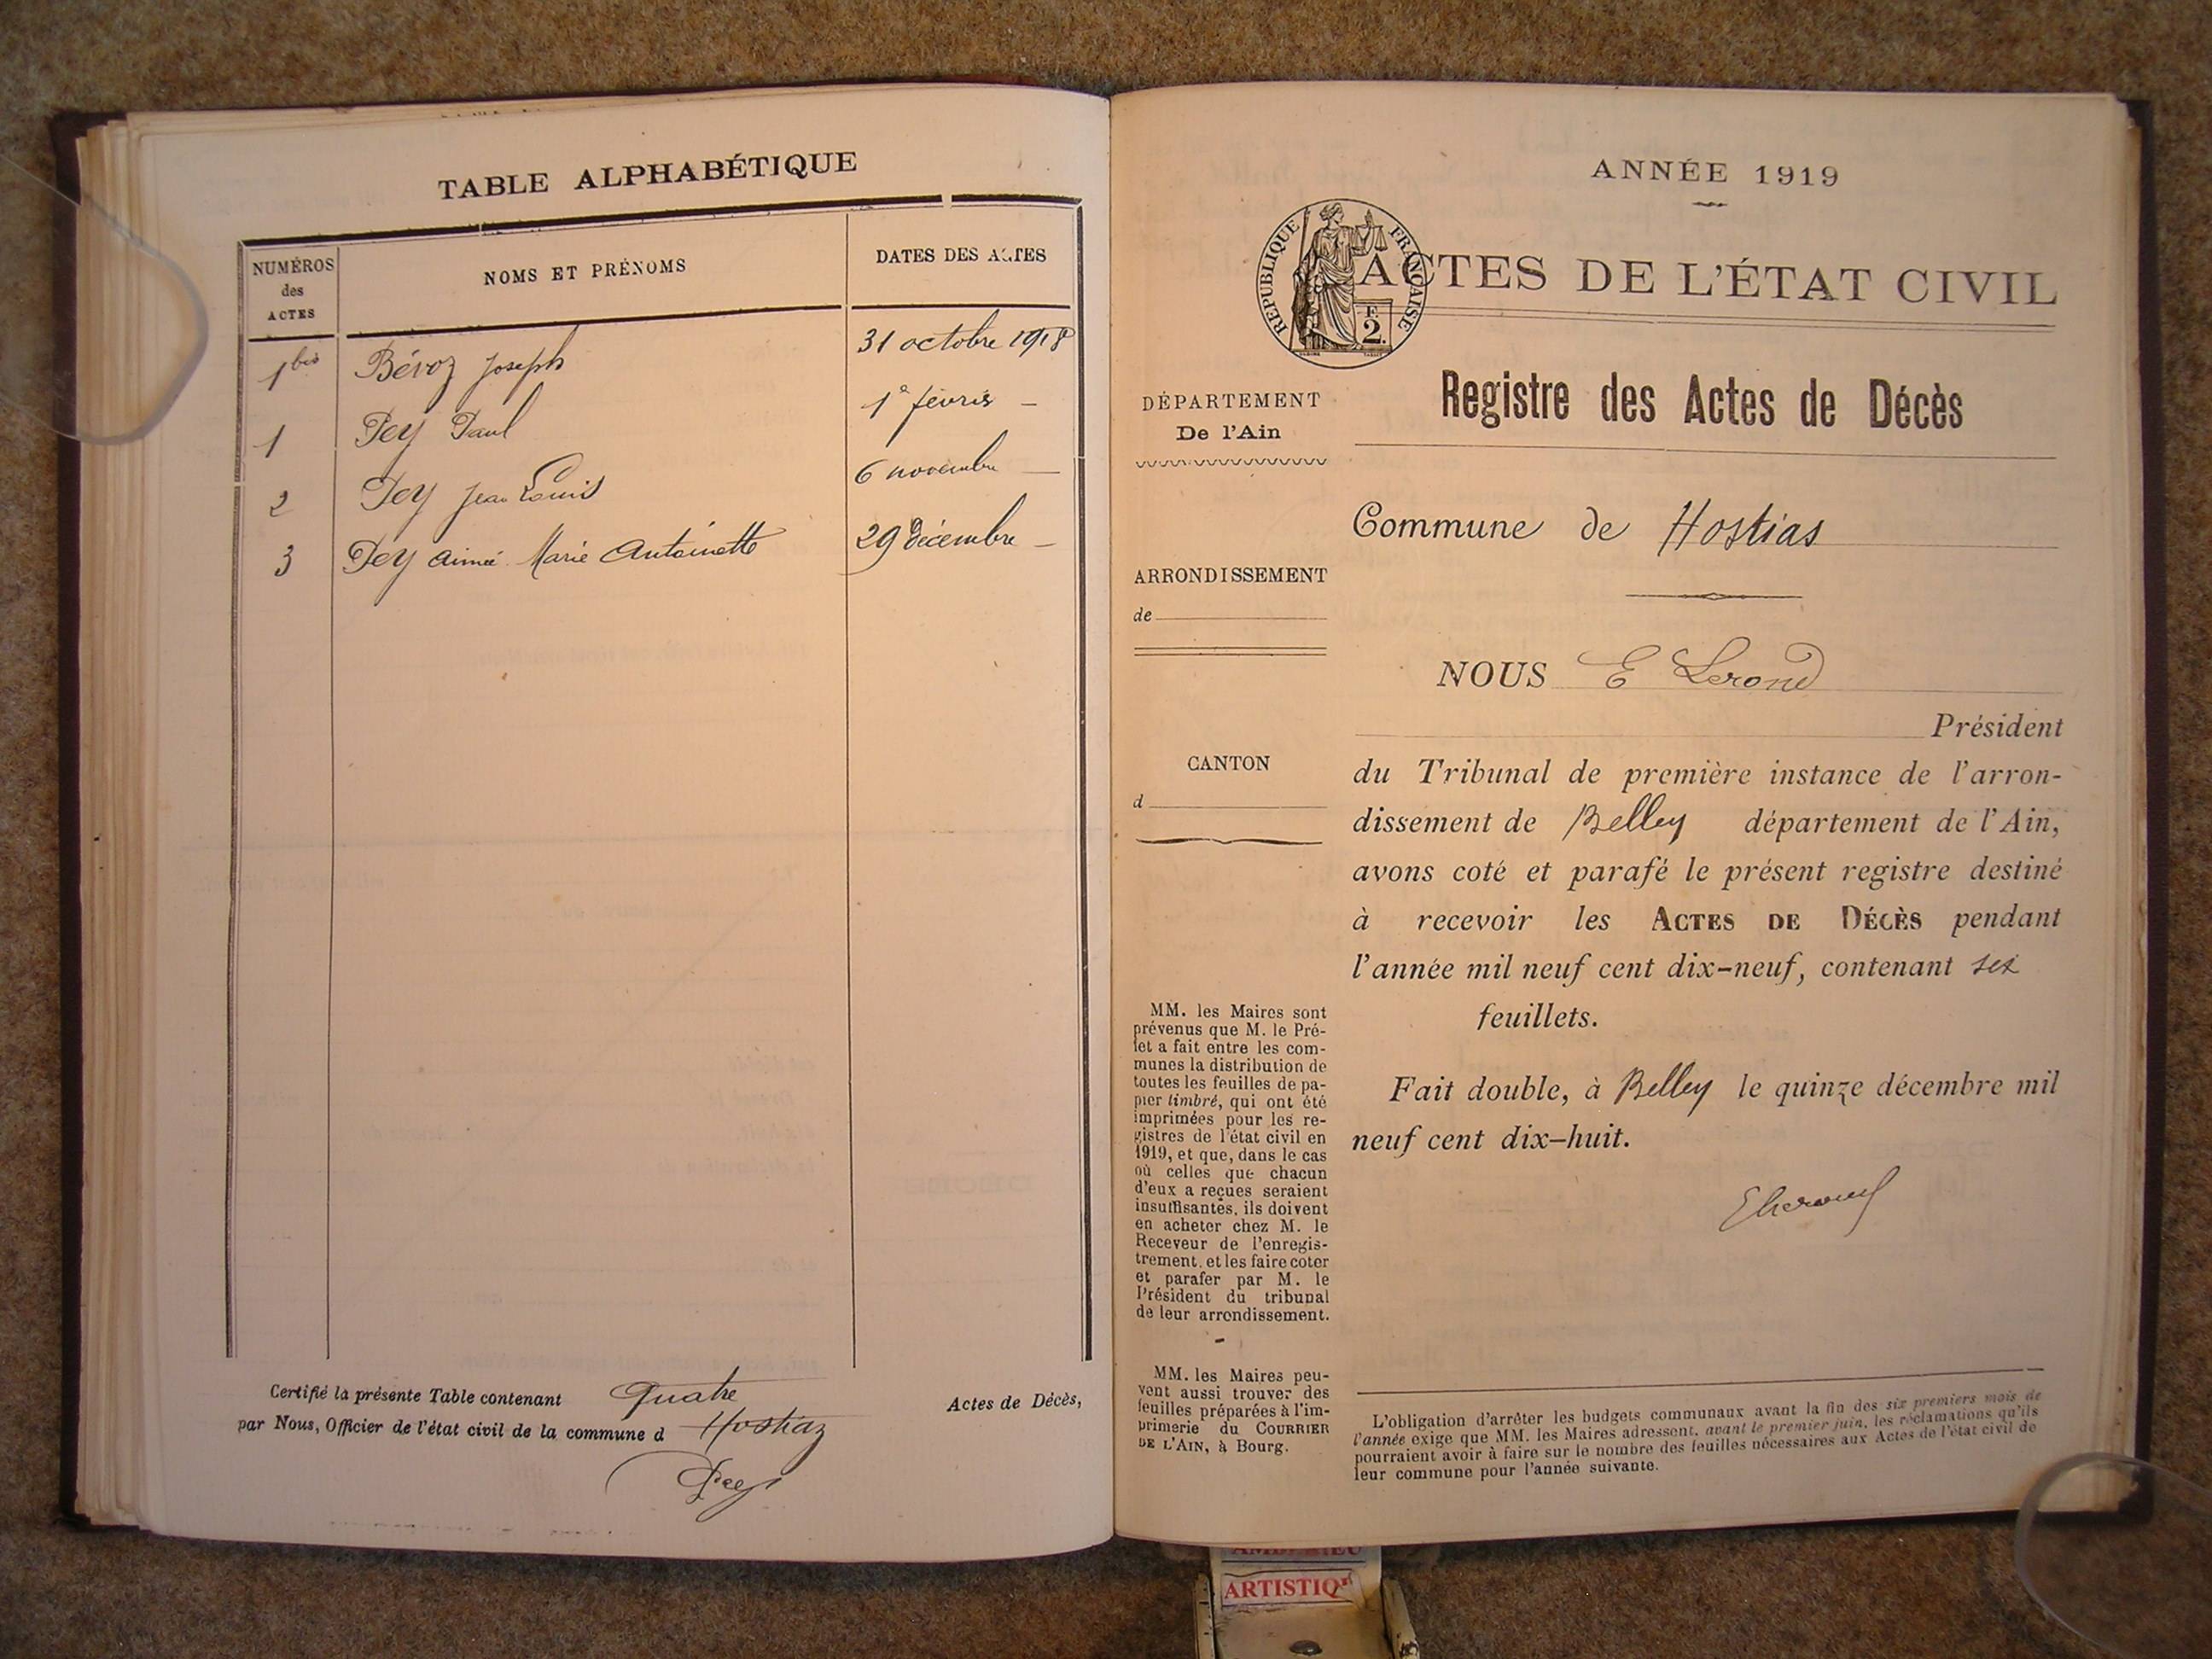 TABLE ALPHABÉTIQUE
NUMÉROS
des
ACTES
NOMS ET PRÉNOMS
DATES DES ACTES
1 bis Bévoz Joseph 31 octobre 1918
1 Pey Paul 1e février —
2 Pey Jean Louis 6 novembre —
3 Pey Aimée Marie Antoinette 29 décembre —
Certifié la présente Table contenant Quatre Actes de Décès,
par Nous, Officier de l'état civil de la commune d Hostiaz
Pey
ANNÉE 1919
REPUBLIQUE FRANÇAISE
F.
2.
ACTES DE L'ÉTAT CIVIL
DÉPARTEMENT
De l'Ain
ARRONDISSEMENT
de
CANTON
d
MM. les Maires sont
prévenus que M. le Pré-
fet a fait entre les com-
munes la distribution de
toutes les feuilles de pa-
pier timbré, qui ont été
imprimées pour les re-
gistres de l'état civil en
1919, et que, dans le cas
où celles que chacun
d'eux a reçues seraient
insuffisantes, ils doivent
en acheter chez M. le
Receveur de l'enregis-
trement, et les faire coter
et parafer par M. le
Président du tribunal
de leur arrondissement.
MM. les Maires peu-
vent aussi trouver des
feuilles préparées à l'im-
primerie du COURRIER
DE L'AIN, à Bourg.
Registre des Actes de Décès
Commune de Hostias
NOUS E Lerond
Président
du Tribunal de première instance de l'arron-
dissement de Belley département de l'Ain,
avons coté et parafé le présent registre destiné
à recevoir les ACTES DE DÉCÈS pendant
l'année mil neuf cent dix-neuf, contenant six
feuillets.
Fait double, à Belley le quinze décembre mil
neuf cent dix-huit.
ELerond
L'obligation d'arrêter les budgets communaux avant la fin des six premiers mois de
l'année exige que MM. les Maires adressent, avant le premier juin, les réclamations qu'ils
pourraient avoir à faire sur le nombre des feuilles nécessaires aux Actes de l'état civil de
leur commune pour l'année suivante.
ARTISTIQ